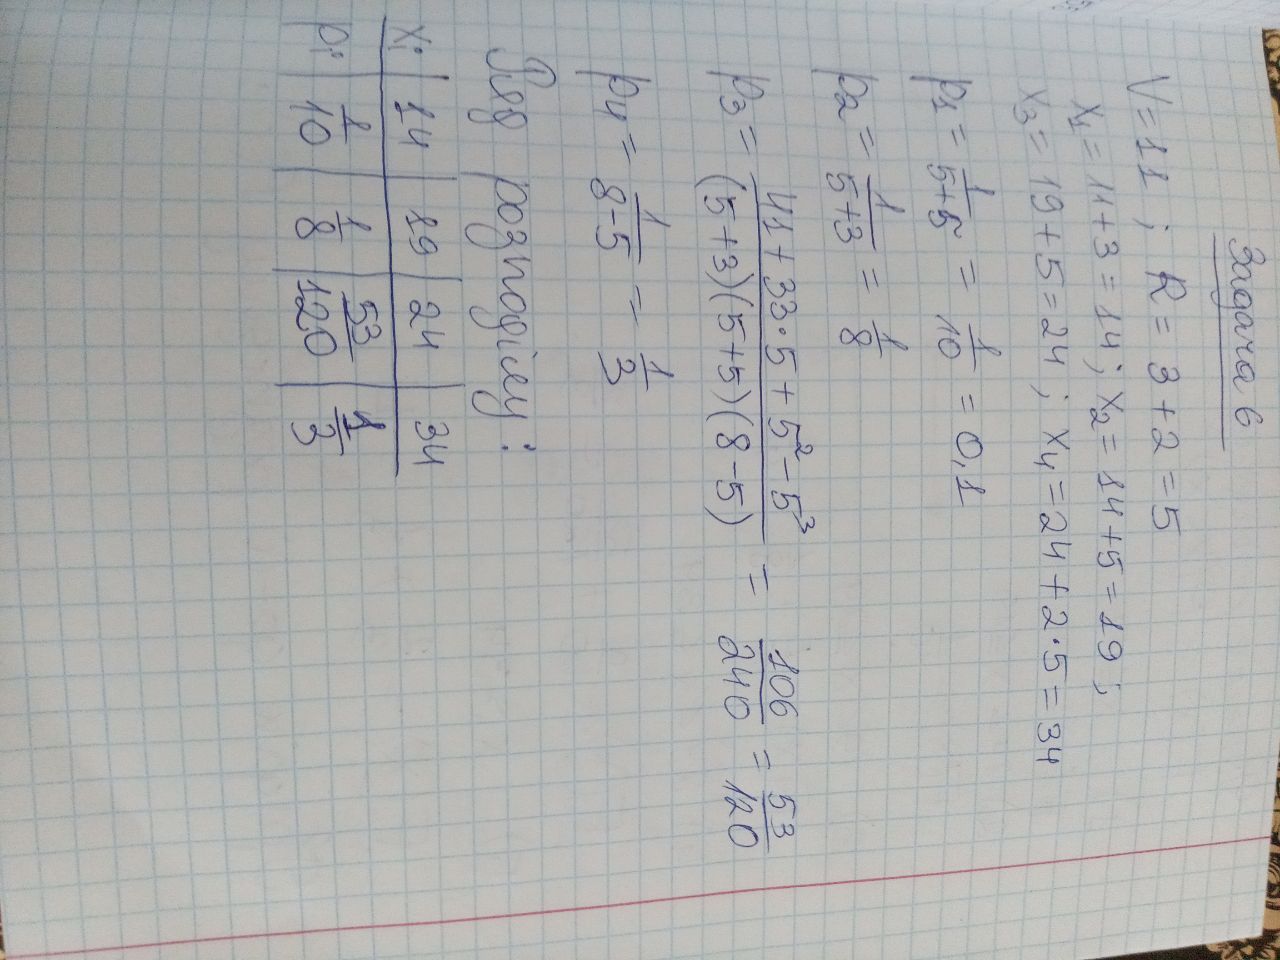 Задача 6
V=11 ; R= 3+2=5
x₁= 11+3=14; x₂= 14+5=19;
x₃= 19+5=24; x₄=24+2·5=34
p₁= 1/(5+5) = 1/10 = 0,1
p₂= 1/(5+3) = 1/8
p₃= (41+33·5+5²-5³)/((5+3)(5+5)(8-5)) = 106/240 = 53/120
p₄= 1/(8-5) = 1/3
Ряд розподілу:
xᵢ | 14 | 19 | 24 | 34
pᵢ | 1/10 | 1/8 | 53/120 | 1/3